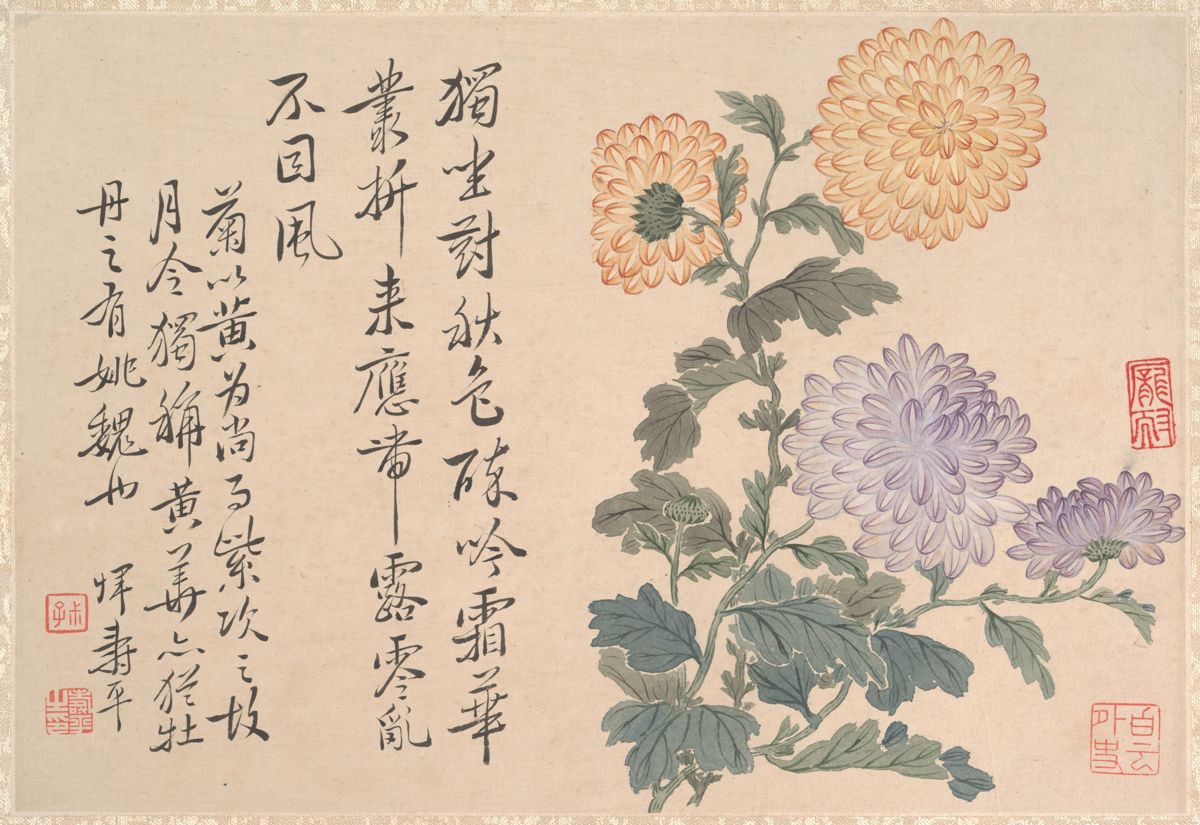 獨坐對秋色醉吟霜華
叢折来應帶露零亂
不因風
菊以黄为尚而紫次之故
月令獨稱黄華亦猶牡
丹之有姚魏也
惲壽平
叔子
白云外史